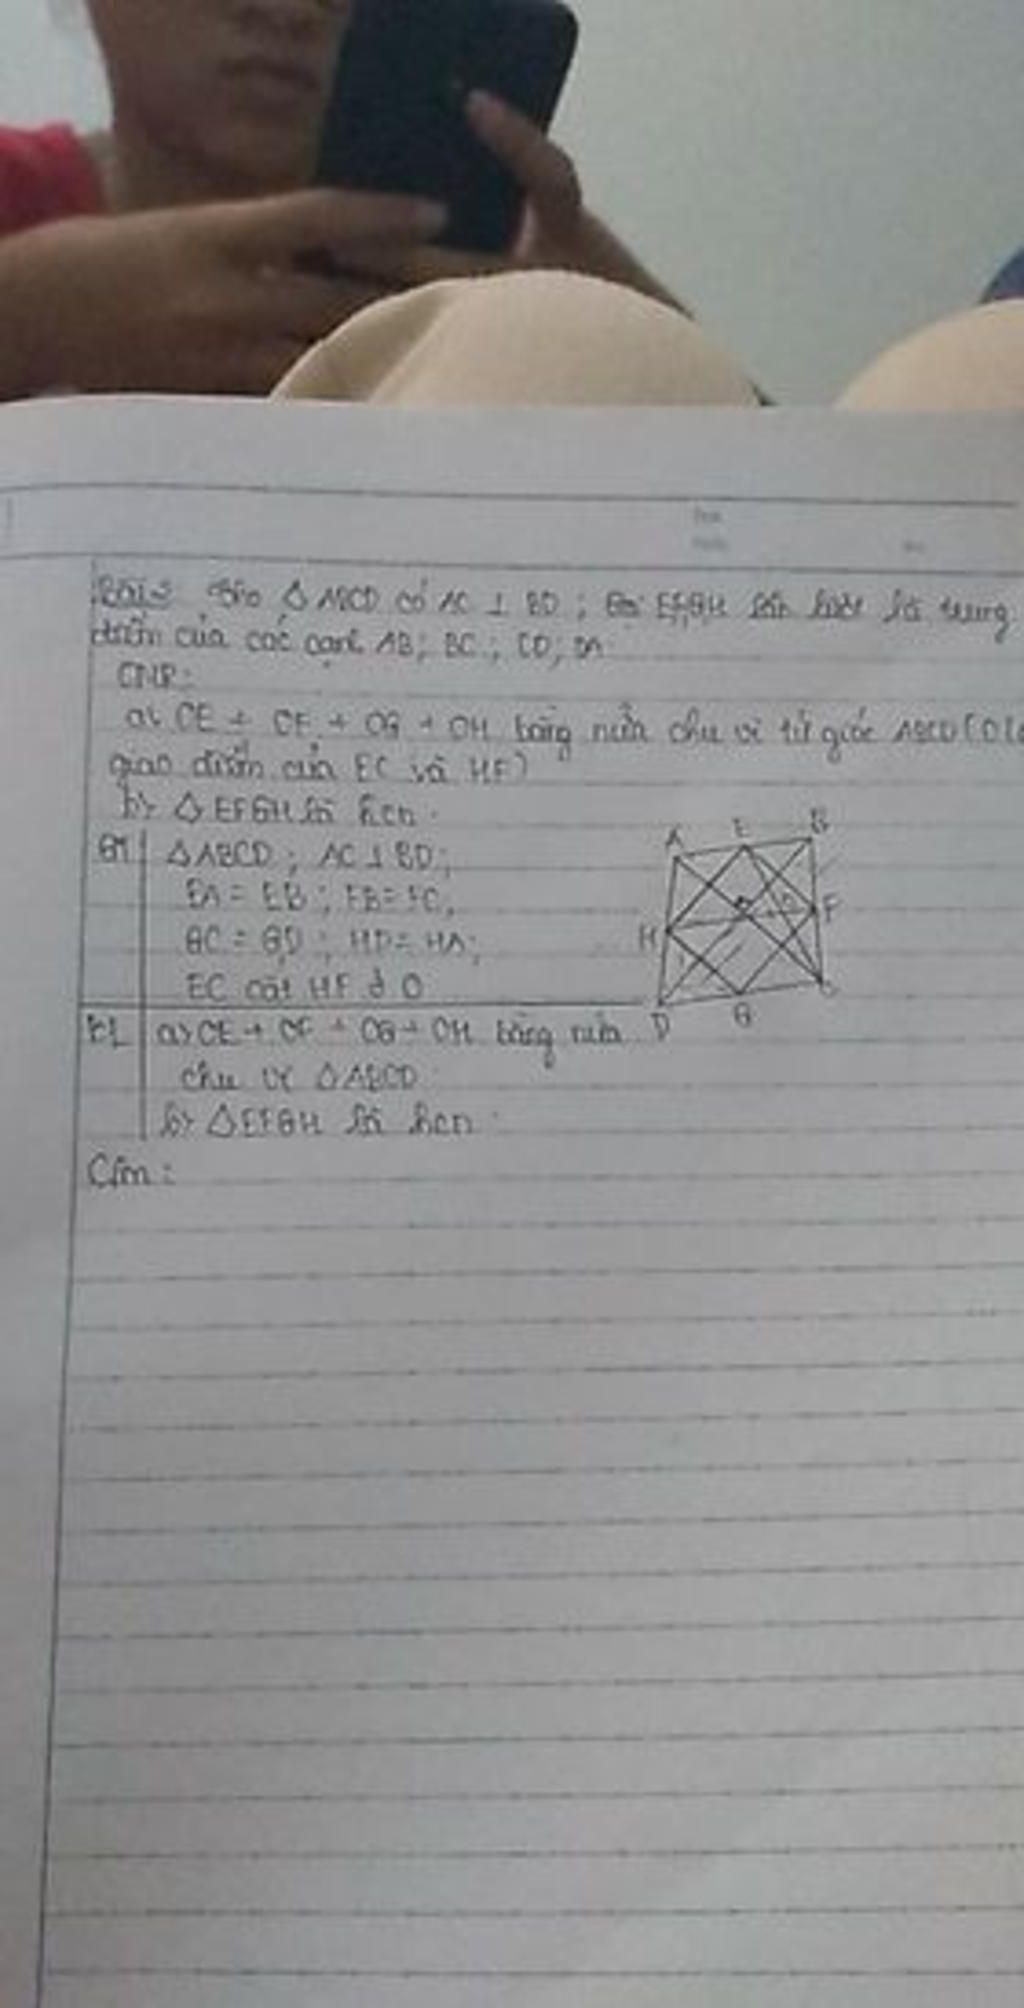 Bài 2 Cho △ ABCD có AC ⊥ BD ; E,F,G,H lần lượt là trung
điểm của các cạnh AB; BC; CD; DA
CMR:
a) OE + OF + OG + OH bằng nửa chu vi tứ giác ABCD (O là
giao điểm của EC và HF)
b) △ EFGH là hcn.
GT △ABCD ; AC ⊥ BD;
EA = EB ; FB = FC;
GC = GD ; HD = HA;
EC cắt HF ở O
KL a) OE + OF + OG + OH bằng nửa
chu vi △ABCD
b) △EFGH là hcn.
Cm:
A E B
H F
D G C